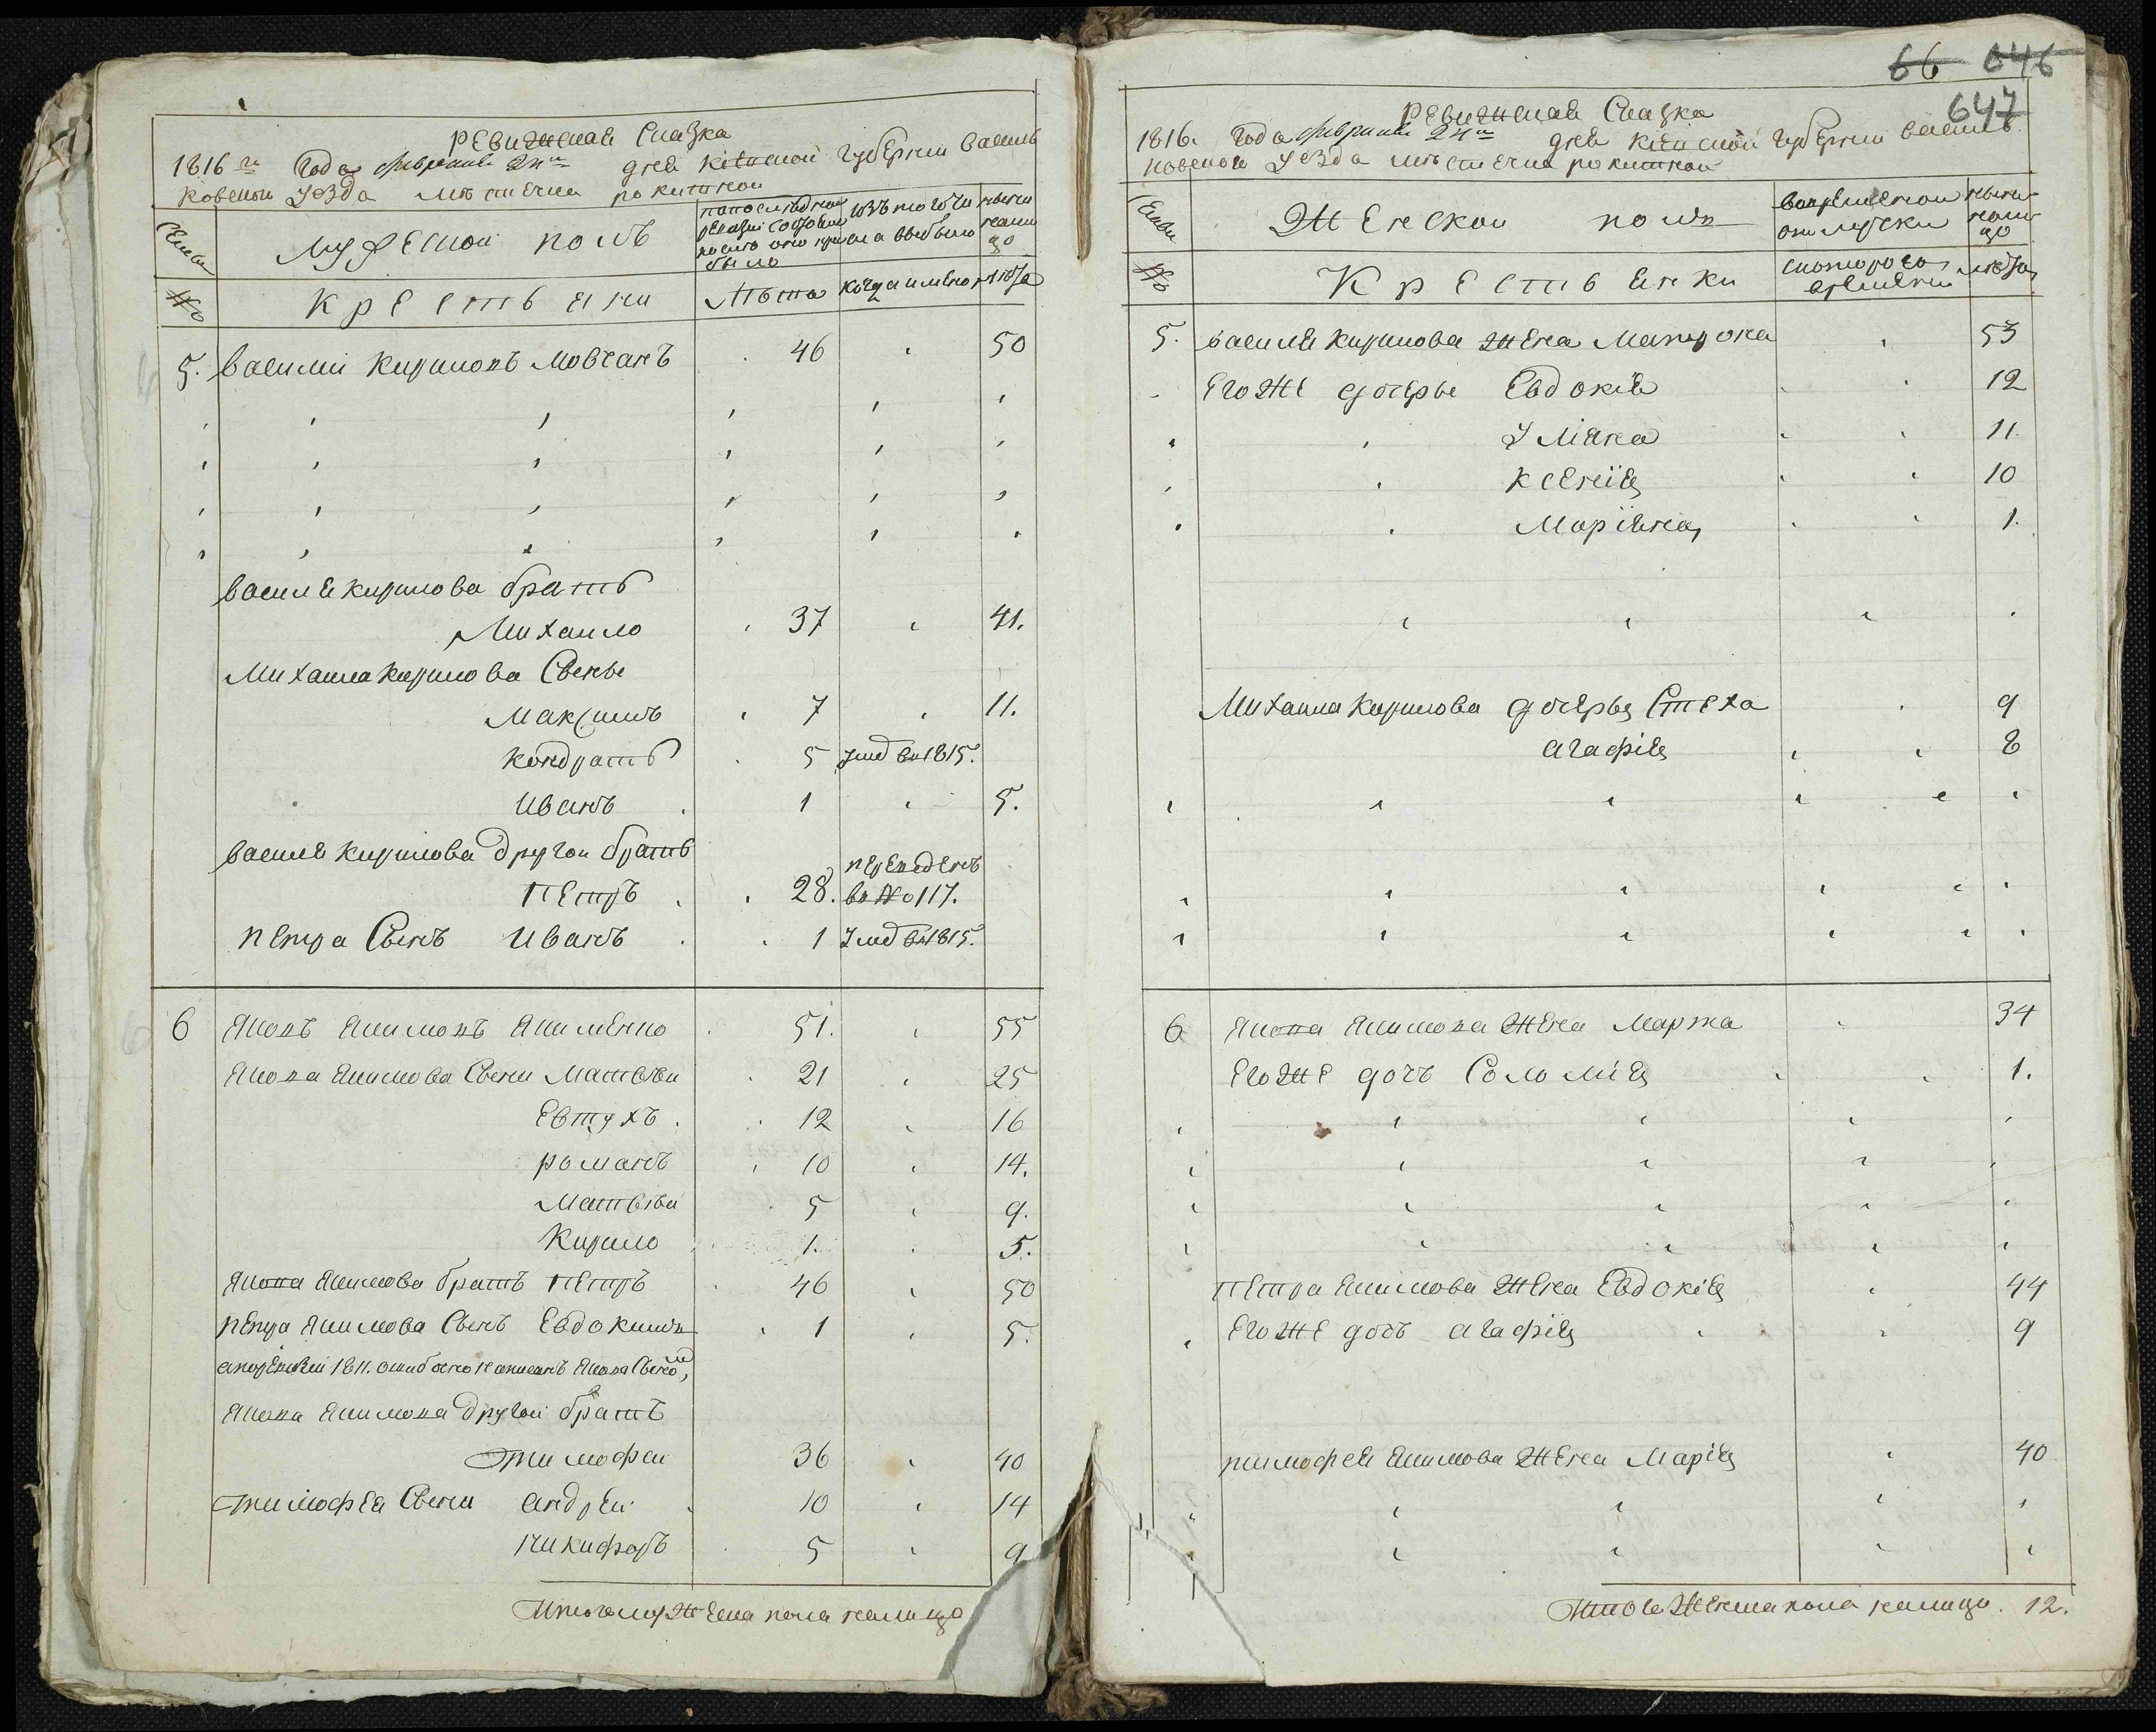 Ревизская Сказка
1816 го Года февраля 24го дня Киевской Губернии василь
ковского Уезда местечка рокитной
Семьи
мужеской полъ
по последней ревизии состояло и после оной прибыло
изъ того числа выбыло
ныне налицо
№
Крестьяни
Лѣта
когда именно
лѣта
5. василий Кириловъ Мовчанъ 46 50
василя кирилова братъ
Михаило 37 41.
Михаила кирилова Сынъя
Максимъ 7 11.
Кондратъ 5 умеръ въ 1815.
Иванъ 1 5.
василя кирилова другой братъ
переведенъ
Петръ 28. въ № 117.
петра Сынъ Иванъ 1 умеръ въ 1815.
6 Яковъ Якимовъ Якименко 51. 55
Якова Якимова Сыны Матвѣй 21 25
Евтухъ 12 16
романъ 10 14.
Матвѣй 5 9.
Кирило 1. 5.
Якова Якимова братъ Петръ 46 50
петра Якимова Сынъ Евдокимъ 1 5.
а по ревизии 1811. ошибочно написанъ Якова Сыномъ
Якова Якимова другой братъ
тимофей 36 40
тимофея Сыны андрей 10 14
никифоръ 5 9
Итого мужеска пола налицо
66 646
647
Ревизская Сказка
1816. Года февраля 24го дня Киевской Губернии василь
ковского Уезда местечка рокитной
Семьи
Женской полъ
во временной отлучки
ныне налицо
№
Крестьянки
съ которого времени
лѣта
5. василя кирилова жена Матрона 53
Его же дочеръи Евдокія 12
Уліяна 11.
Ксенія 10
Маріяна 1.
Михаила кирилова дочеръя Стеха 9
агафія 8
6 Якова Якимова жена Марта 34
Его же дочъ Соломія 1.
петра Якимова жена Евдокія 44
Его же дочъ агафія 9
тимофея Якимова жена Марія 40
Итого женска пола налицо. 12.